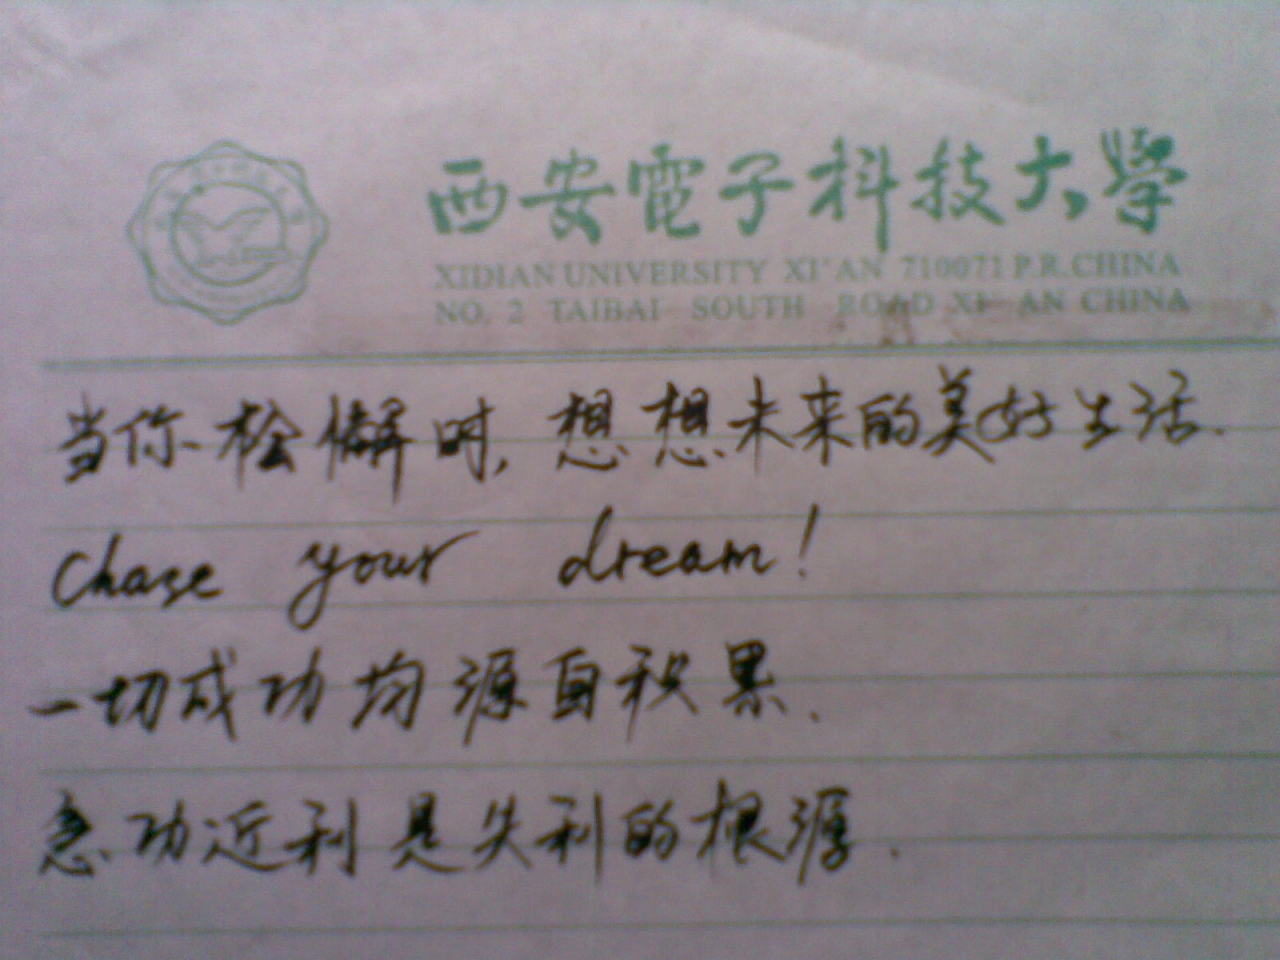 西安電子科技大學
XIDIAN UNIVERSITY XI'AN 710071 P.R.CHINA
NO. 2 TAIBAI SOUTH ROAD XI' AN CHINA
当你松懈时,想想未来的美好生活.
Chase your dream!
一切成功均源自积累.
急功近利是失利的根源.